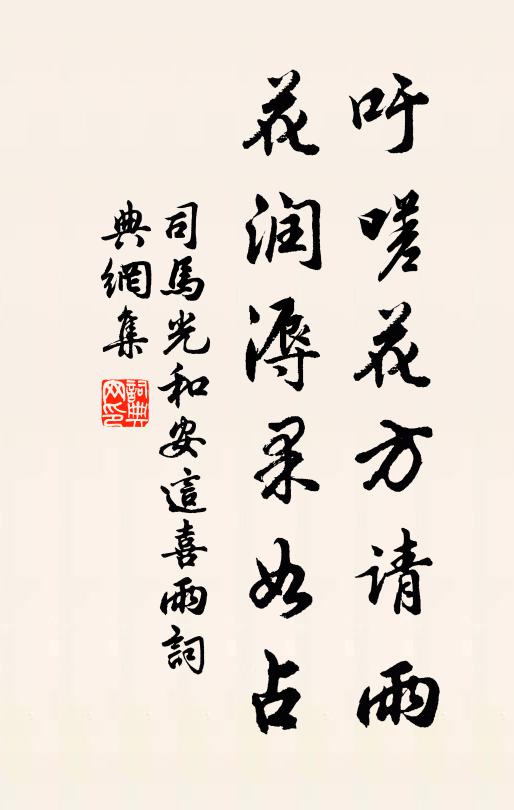 吁嗟花方请雨
花润溽果如占
司馬光和安這喜雨詞
典網集
詞典网印